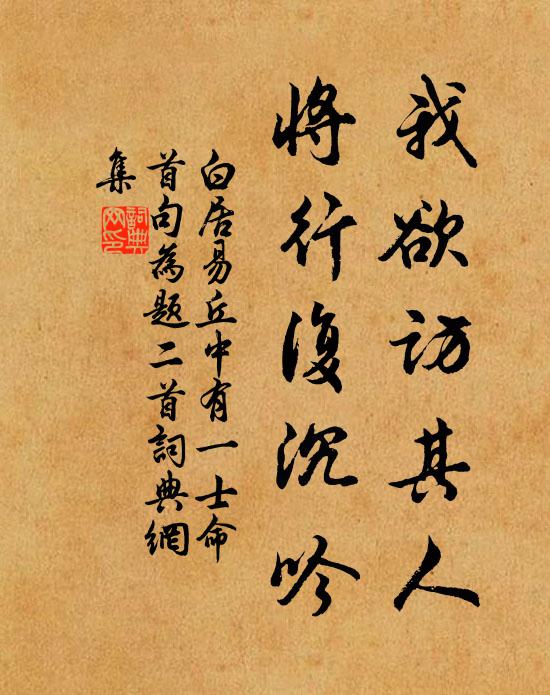 我欲访其人
将行复沉吟
白居易丘中有一士命
首句為题二首詞典網
集
詞典
网印